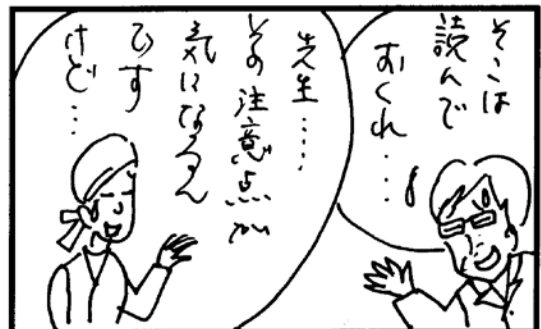 そこは
読んで
おくれ…
先生……
その注意点が
気になるん
ですけど…